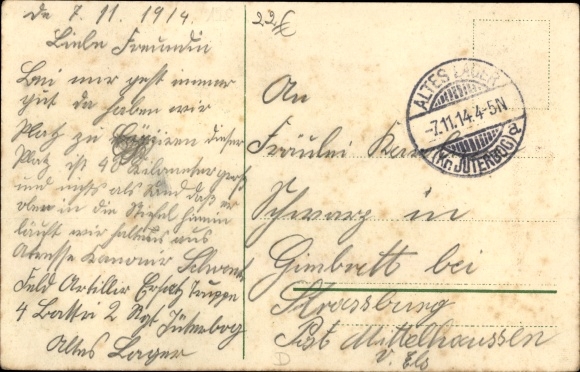 De 7. 11. 1914.
Liebe Freundin
Bei mir geht immer
gut da haben wir
Platz zu dieser
Platz ist 4 Kilometer groß
und nichts als Sand daß er
oben in die Stiefel hinein
läuft wir
Adresse Kanonir Schwarz
Feld Artillir Ersatz Truppe
4 Battri 2 Rgt Jüterbog
Altes Lager
An
Fräulei
Schwarz in
Gimbrett bei
Strassburg
Post Mittelhaussen
v. Els
ALTES LAGER
-7.11.14.4-5N
(Kr. JÜTERBOG) a